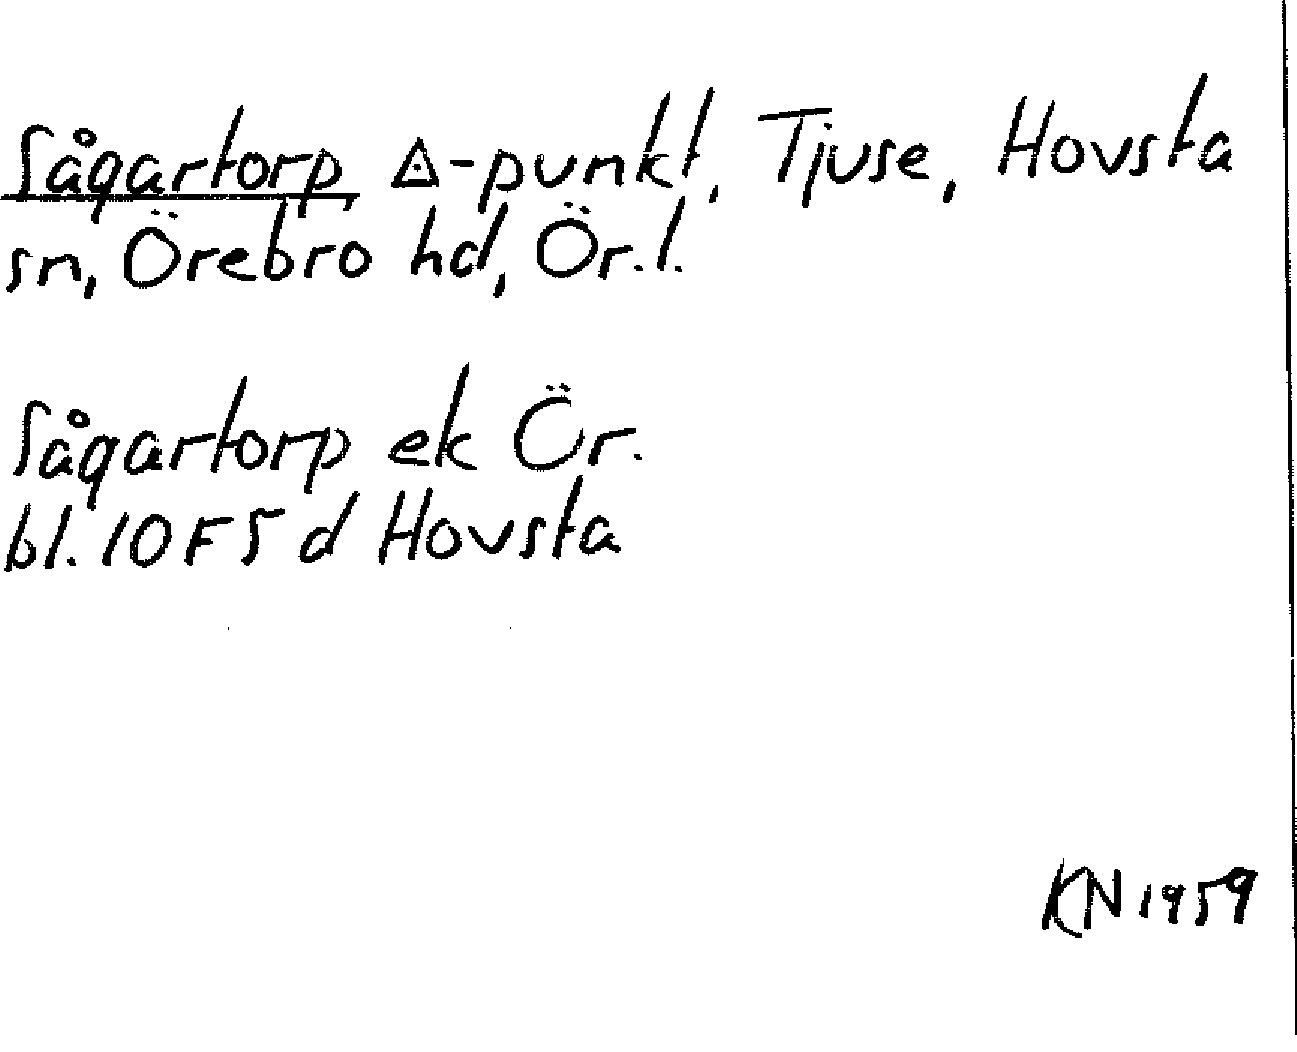 Sågartorp, ◬-punkt, Tjuse, Hovsta
sn, Örebro hd, Ör.l.
Sågartorp ek Ör.
bl. 10F5d Hovsta
KN 1959